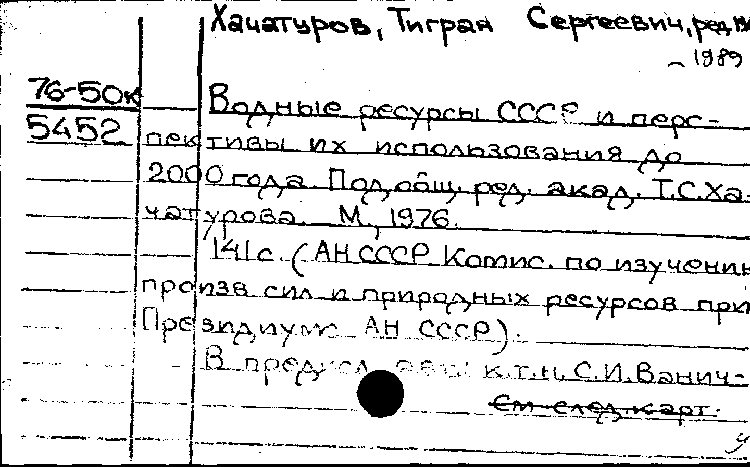 Хачатуров, Тигран Сергеевич, ред.
1989
76-50к
5452
Водные ресурсы СССР и перс-
пективы их использования до
2000 года. Под общ. ред. акад. Т.С.Ха-
чатурова. М., 1976.
141 с. (АН СССР Комис. по изучению
произв сил и природных ресурсов при
Президиуме АН СССР).
В предисл. авт.: к.т.н. С.И.Ванич-
См след карт.